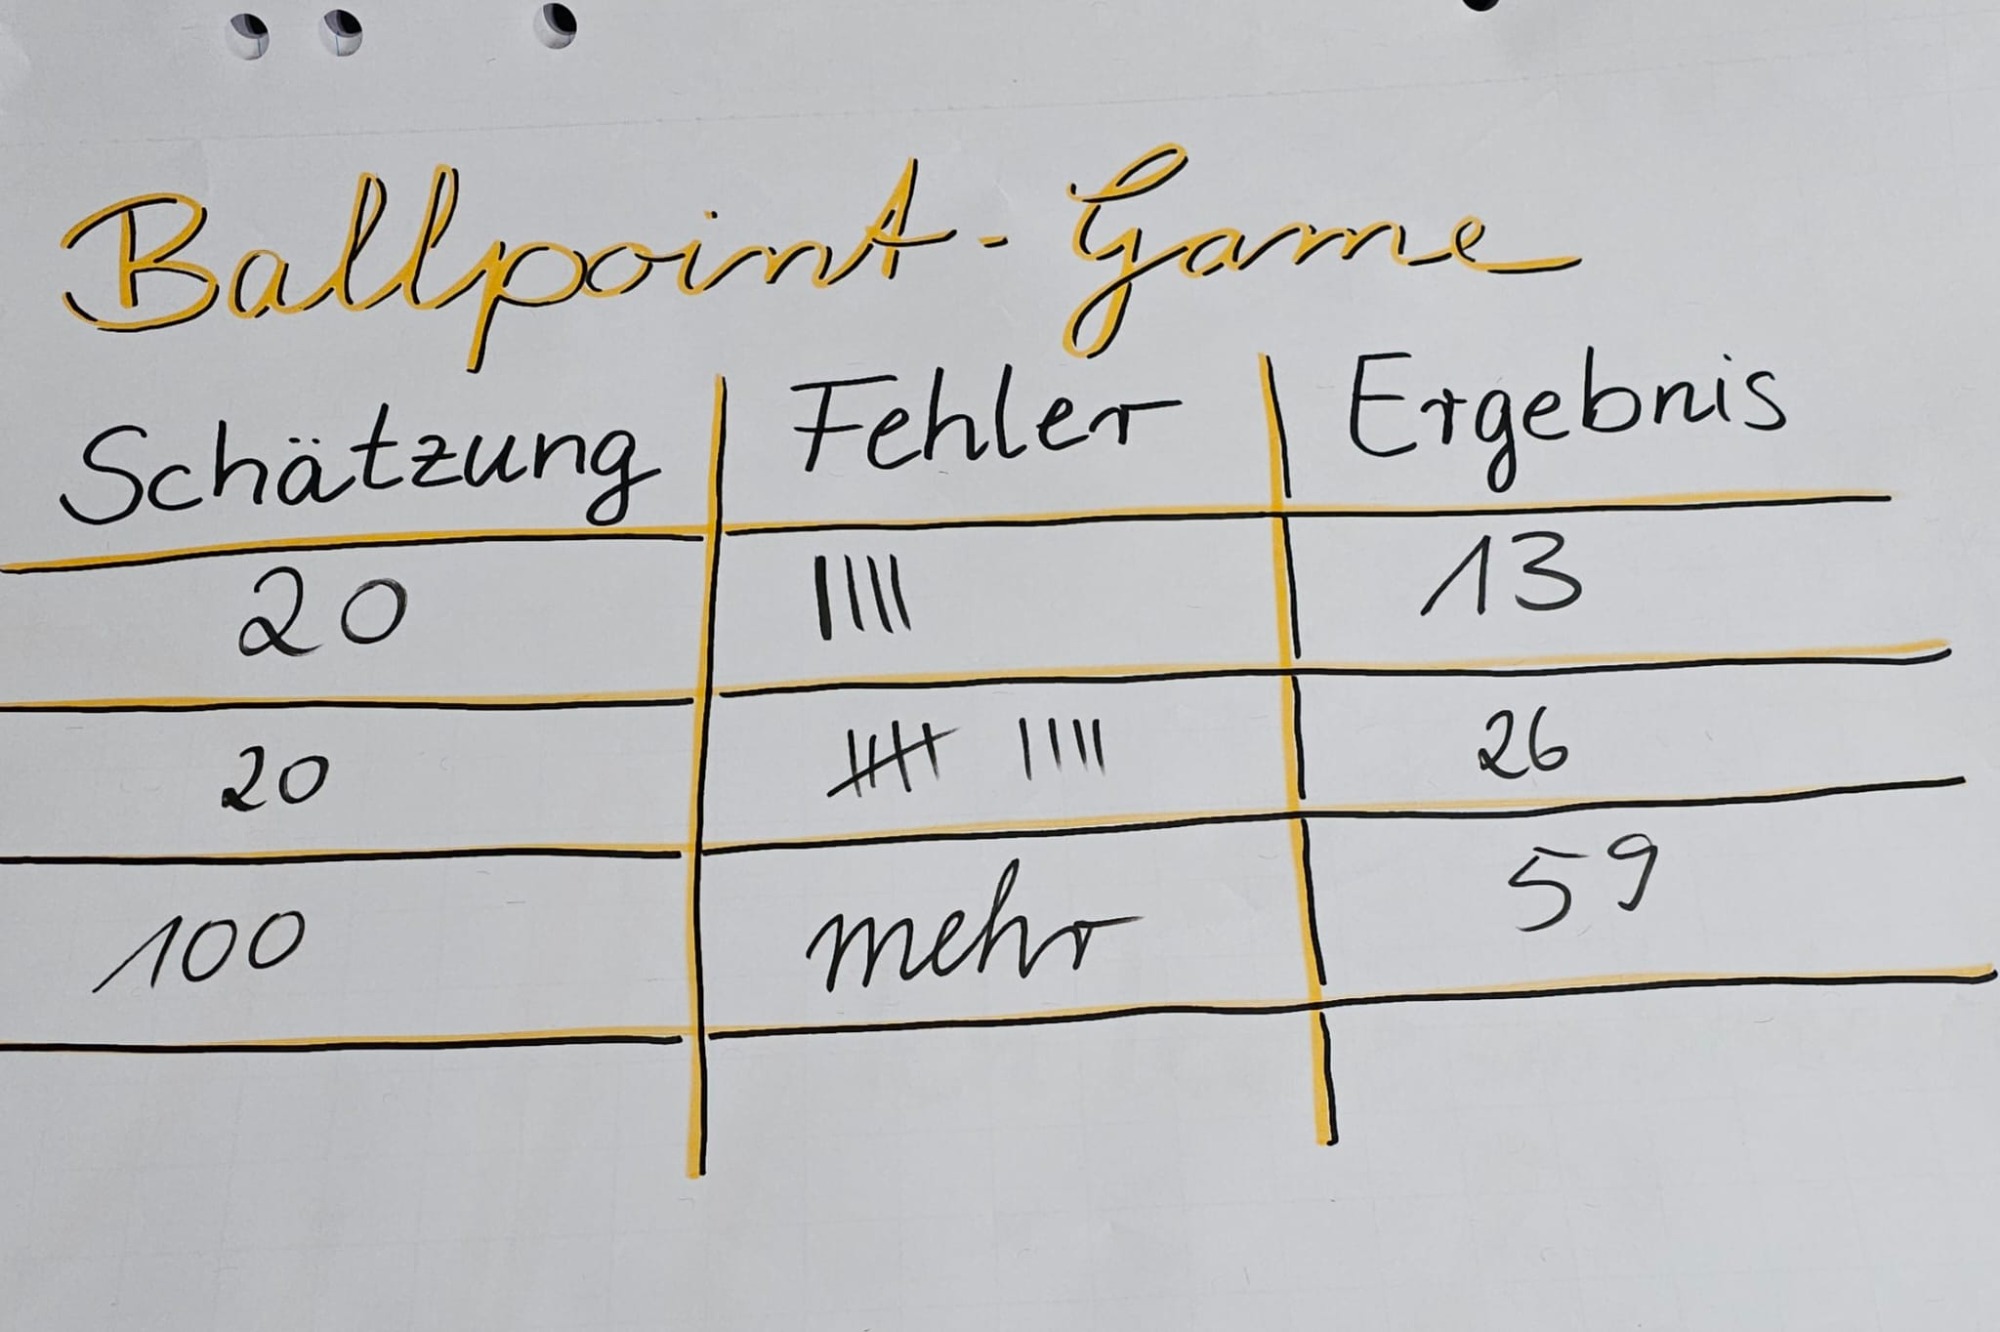 Ballpoint-Game
Schätzung Fehler Ergebnis
20 |||| 13
20 𝍸 |||| 26
100 mehr 59